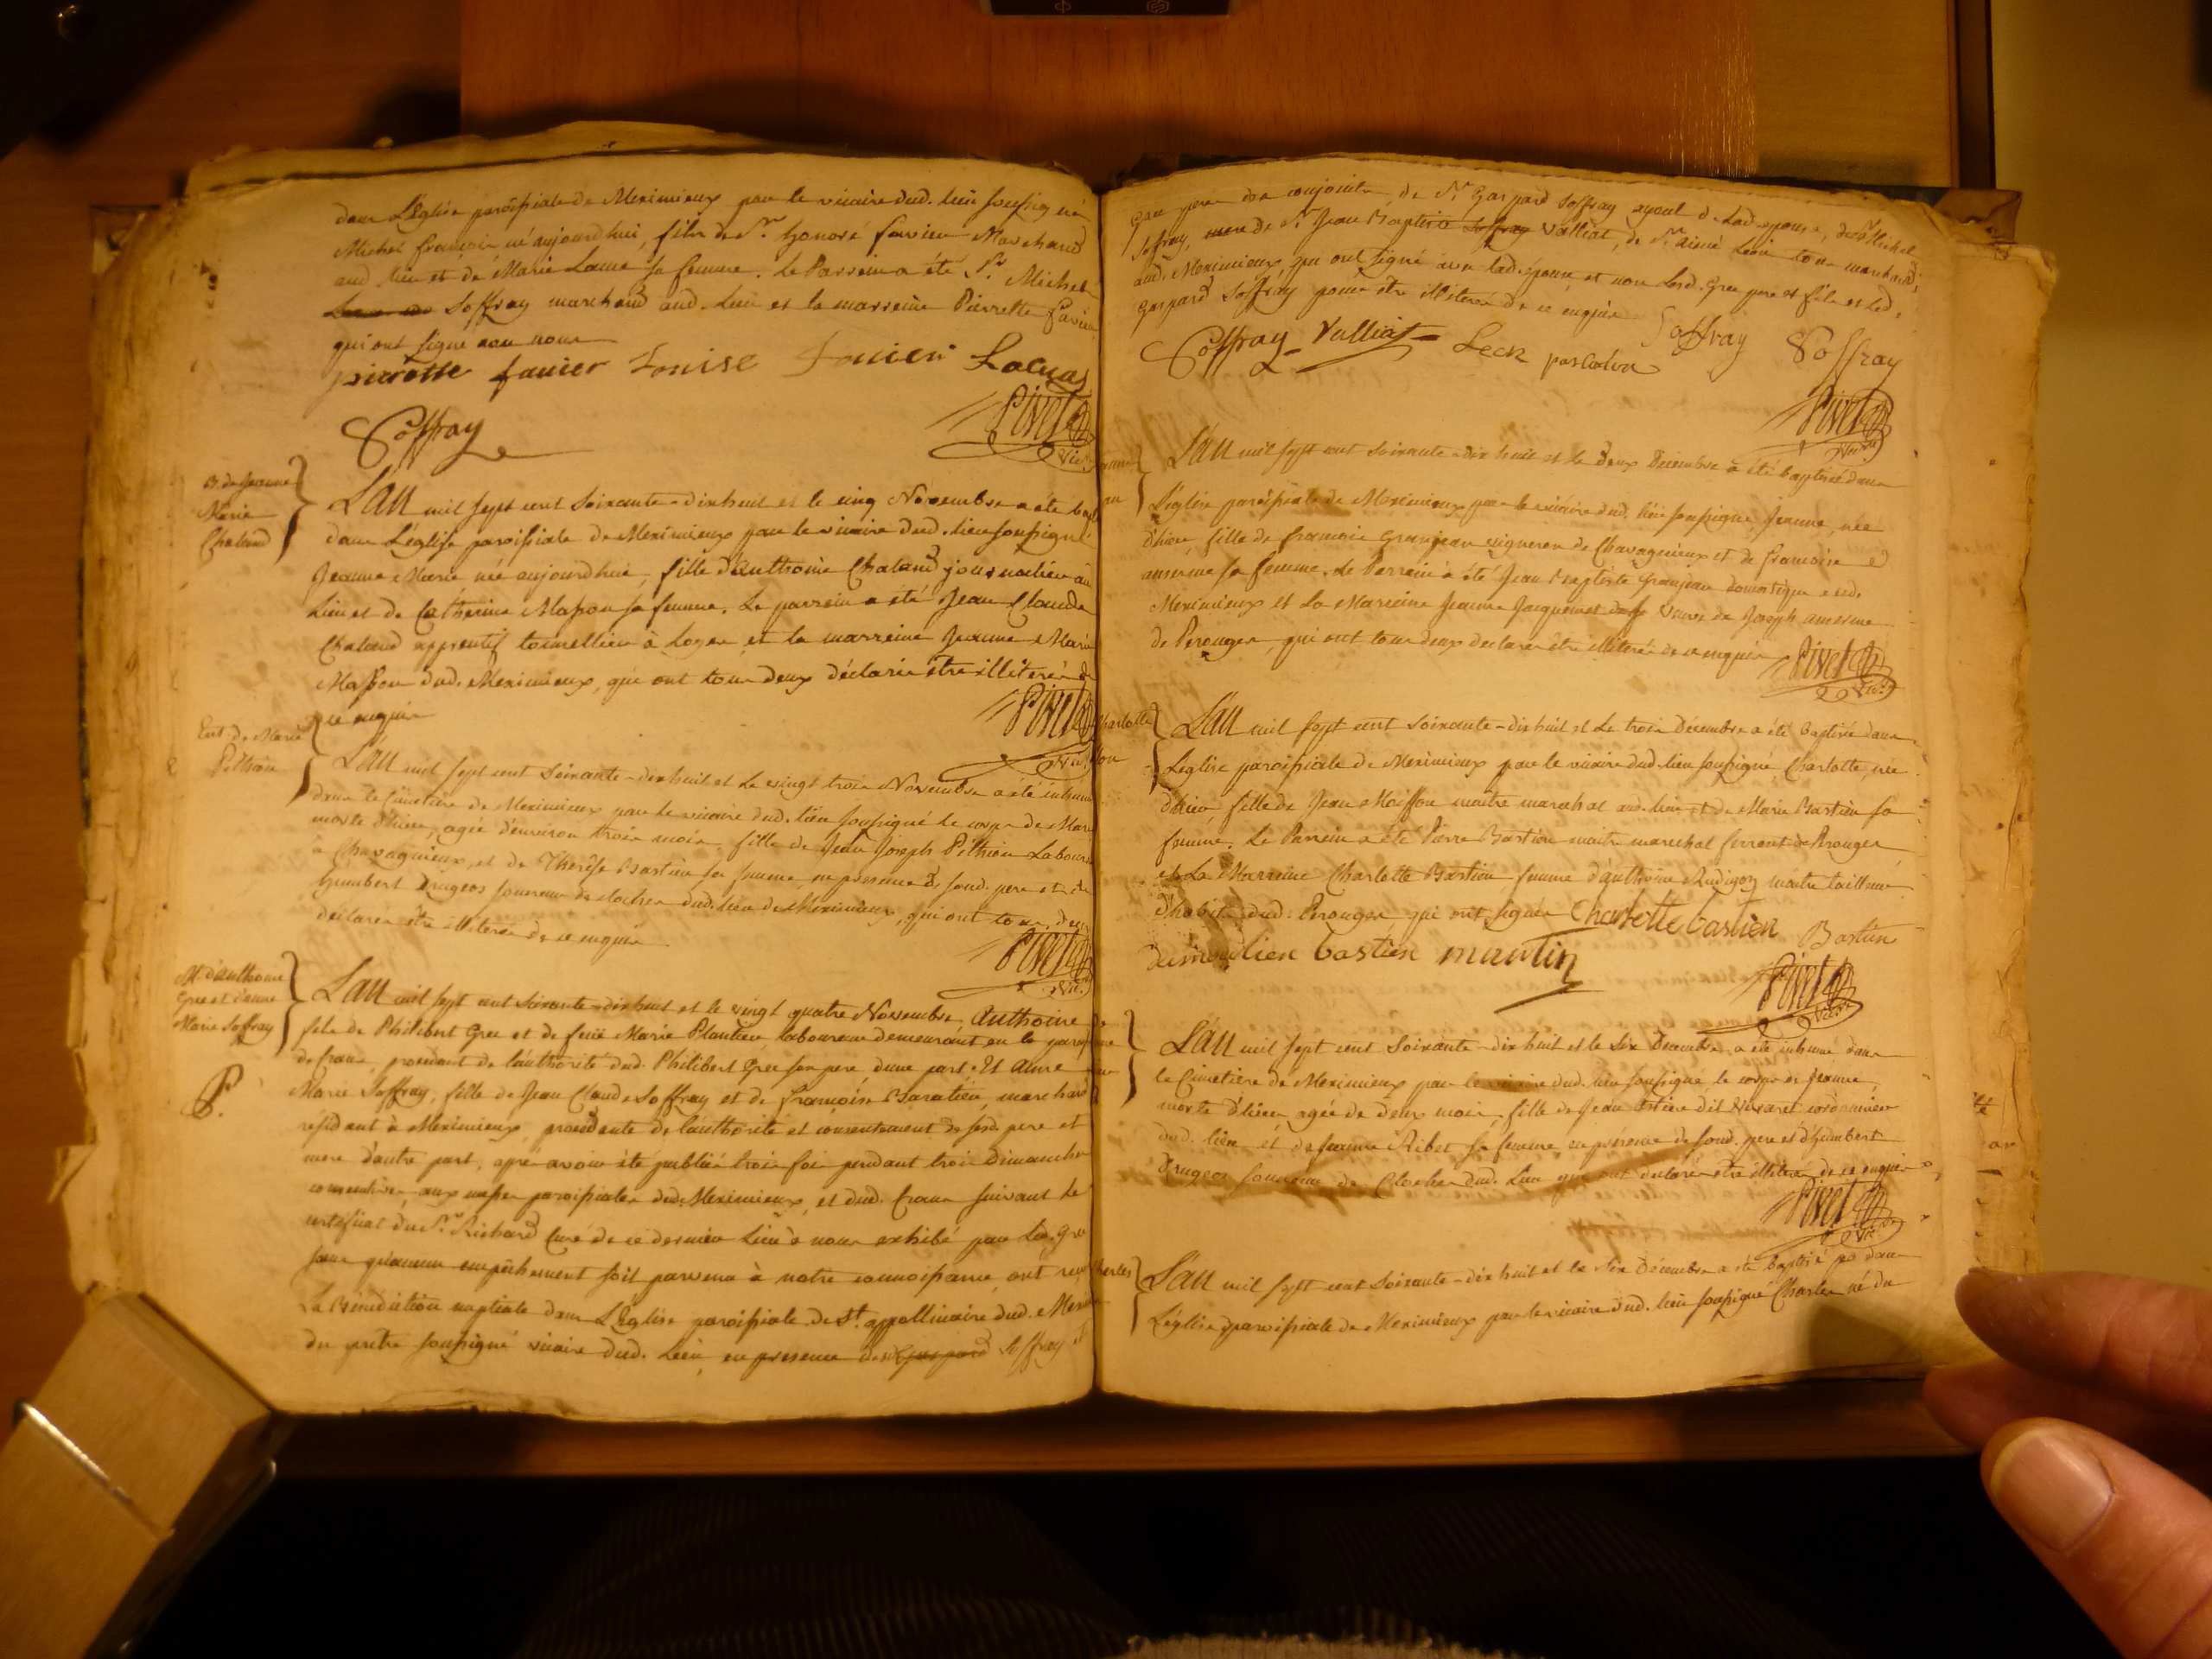 dans L'Eglise paroissiale de Meximieux par le vicaire dud. lieu soussigné
Michel françois, né aujourd'hui, fils de Sr. honoré favier Marchand
aud. lieu et de Marie Lacua sa femme. Le Parrein a été Sr. Michel
Soffray marchand aud. lieu et la marreine Pierrette favier
qui ont signé avec nous
pierrotte favier Louise Favier Lacua
Soffray
Pivet
Vic.
B. de Jeanne
Marie
Chaland
L'an mil sept cent soixante-dix huit et le cinq Novembre a été bapt
dans L'église paroissiale de Meximieux par le vicaire dud. lieu soussigné
Jeanne Marie née aujourd'hui, fille d'anthoine Chaland journalier au
lieu et de Catherine Masson sa femme. Le parrein a été Jean Claude
Chaland apprentif tonnellier à Loyes et la marreine Jeanne Marie
Masson dud. Meximieux, qui ont tous deux déclarés être illiterés de
ce enquis
Pivet
Vic.
Ent. de Marie
Péthion
L'an mil sept cent soixante-dix huit et le vingt trois Novembre a été inhumé
dans le Cimetière de Meximieux par le vicaire dud. lieu soussigné le corps de Marie
morte d'hier, agée d'environ trois mois fille de Jean Joseph Péthion Laboureur
à Chavagnieux, et de Thérèse Bastien sa femme, en presence de sond. pere et de
humbert Drugeos sonneur de cloches dud. lieu de Meximieux, qui ont tous deux
déclarés être illiterés de ce enquis
Pivet
Vic.
M. d'anthoine
Gree et d'anne
Marie Soffray
L'an mil sept cent soixante-dix huit et le vingt quatre Novembre, Anthoine
fils de Philibert Gree et de feüe Marie Plantier, laboureur demeurant en la paroisse
de Crans, procedant de l'authorité dud. Philibert Gree son pere d'une part. Et Anne
P.
Marie Soffray, fille de Jean Claude Soffray et de françoise Baratier, marchand
résidant à Meximieux, procédante de l'authorité et consentement de sesd. pere et
mere d'autre part, après avoir été publiés trois fois pendant trois Dimanches
consécutives, aux messes paroissiales dud. Meximieux, et dud. Crans suivant le
certificat du Sr. Richard Curé de ce dernier lieu à nous exhibé par led. Gree
sans qu'aucun empêchement soit parvenu à notre connoissance, ont reçu
La Bénédiction nuptiale dans L'église paroissiale de St. appollinaire dud. Meximieux
du prêtre soussigné vicaire dud. Lieu, en presence desd. Gaspard Soffray et
Gree peres des conjoints, de Sr. Gaspard Soffray ayeul de Lad. epouse, de Sr. Michel
Soffray, de Sr. Jean Baptiste Soffray Valliat, de Sr. aimé Leon tous marchands
aud. Meximieux, qui ont signé avec lad. épouse, et non Lesd. Gree pere et fils et led.
Gaspard Soffray pour être illiterés de ce enquis
Soffray Soffray
Soffray Valliat Leon
Pivet
Vic.
L'an mil sept cent soixante-dix huit et le deux Décembre a été baptisée dans
L'église paroissiale de Meximieux par le vicaire dud. lieu soussigné, Jeanne, née
d'hier, fille de françois Granjean vigneron de Chavagnieux et de françoise
anserme sa femme. Le Parrein a été Jean Baptiste Granjean domestique aud.
Meximieux et la Marreine Jeanne Jacquemet veuve de Joseph anserme
de Perouges, qui ont tous deux declarés être illiterés de ce enquis
Pivet
Vic.
Charlotte
L'an mil sept cent soixante-dix huit et le trois Décembre a été Baptisée dans
L'église paroissiale de Meximieux par le vicaire dud. lieu soussigné, Charlotte, née
d'hier, fille de Jean Maisson maitre marechal aud. lieu et de Marie Bastien sa
femme. Le Parrein a été Pierre Bastien maitre marechal ferrant de Perouges
et La Marreine Charlotte Bastien femme d'anthoine Rudigoz maitre tailleur
d'habits dud. Perouges, qui ont signés Charlotte bastien Bastien
bastien martin
Pivet
Vic.
L'an mil sept cent soixante-dix huit et le six Décembre a été inhumé dans
le Cimetière de Meximieux par le vicaire dud. lieu soussigné, le corps de Jeanne,
morte d'hier, agée de deux mois, fille de Jean dit Navaret cordonnier
dud. lieu et de Jeanne Ribet sa femme, en présence de sond. pere et d'humbert
Drugeos sonneur de Cloches dud. Lieu qui ont declarés être illiterés de ce enquis
Pivet
Vic.
Charles
L'an mil sept cent soixante-dix huit et le six Décembre a été baptisé dans
L'église paroissiale de Meximieux par le vicaire dud. lieu soussigné Charles né du